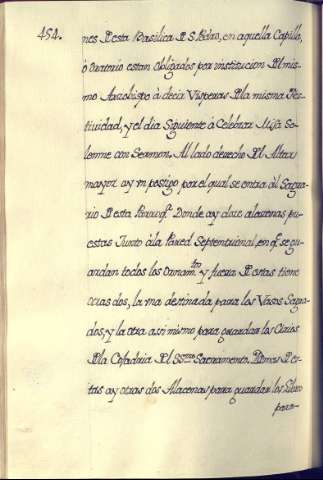 454.
nes D esta Basilica D S. Pedro, en aquella Capilla,
ò oratorio estan obligados por institucion Dl mis-
mo Arzobispo à decir Visperas Dla misma Fes-
tividad, y el dia Siguiente à Celebrar Misa So-
lemne con Sermon. Al lado derecho Dl Altar
mayor ay un postigo por el qual se entra àl Sagra-
rio D esta Parroqª. Donde ay cinco alacenas pu-
estas Junto àla Pared Septentrional, en q.ᵉ se gu-
ardan todos los Ornam.ᵗᵒˢ y fuera D estas tiene
otras dos, la una destinada para los Vasos Sagra-
dos, y la otra asi mismo para guardar los Cirios
Dla Cofadria Dl SSᵐᵒ Sacramento. Demas D es-
tas ay otras dos Alacenas para guardar los Libro
para-